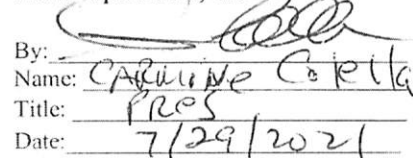 By:
Name: CARMINE Colella
Title: PRES
Date: 7/29/2021